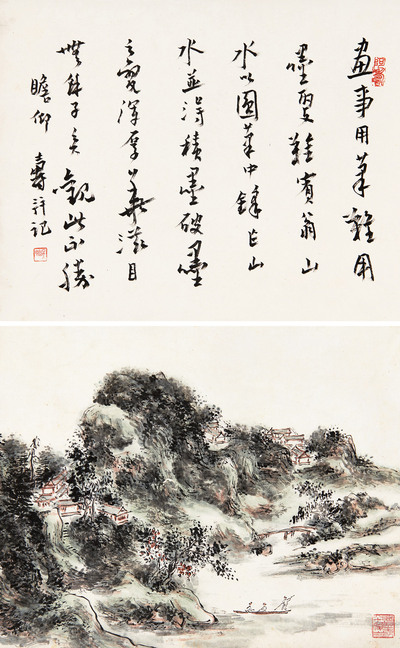 畫事用筆難用
墨更難賓翁山
水以圓筆中鋒作山
水並得積墨破墨
之變渾厚華滋目
無餘子矣觀此不勝
瞻仰 壽 記